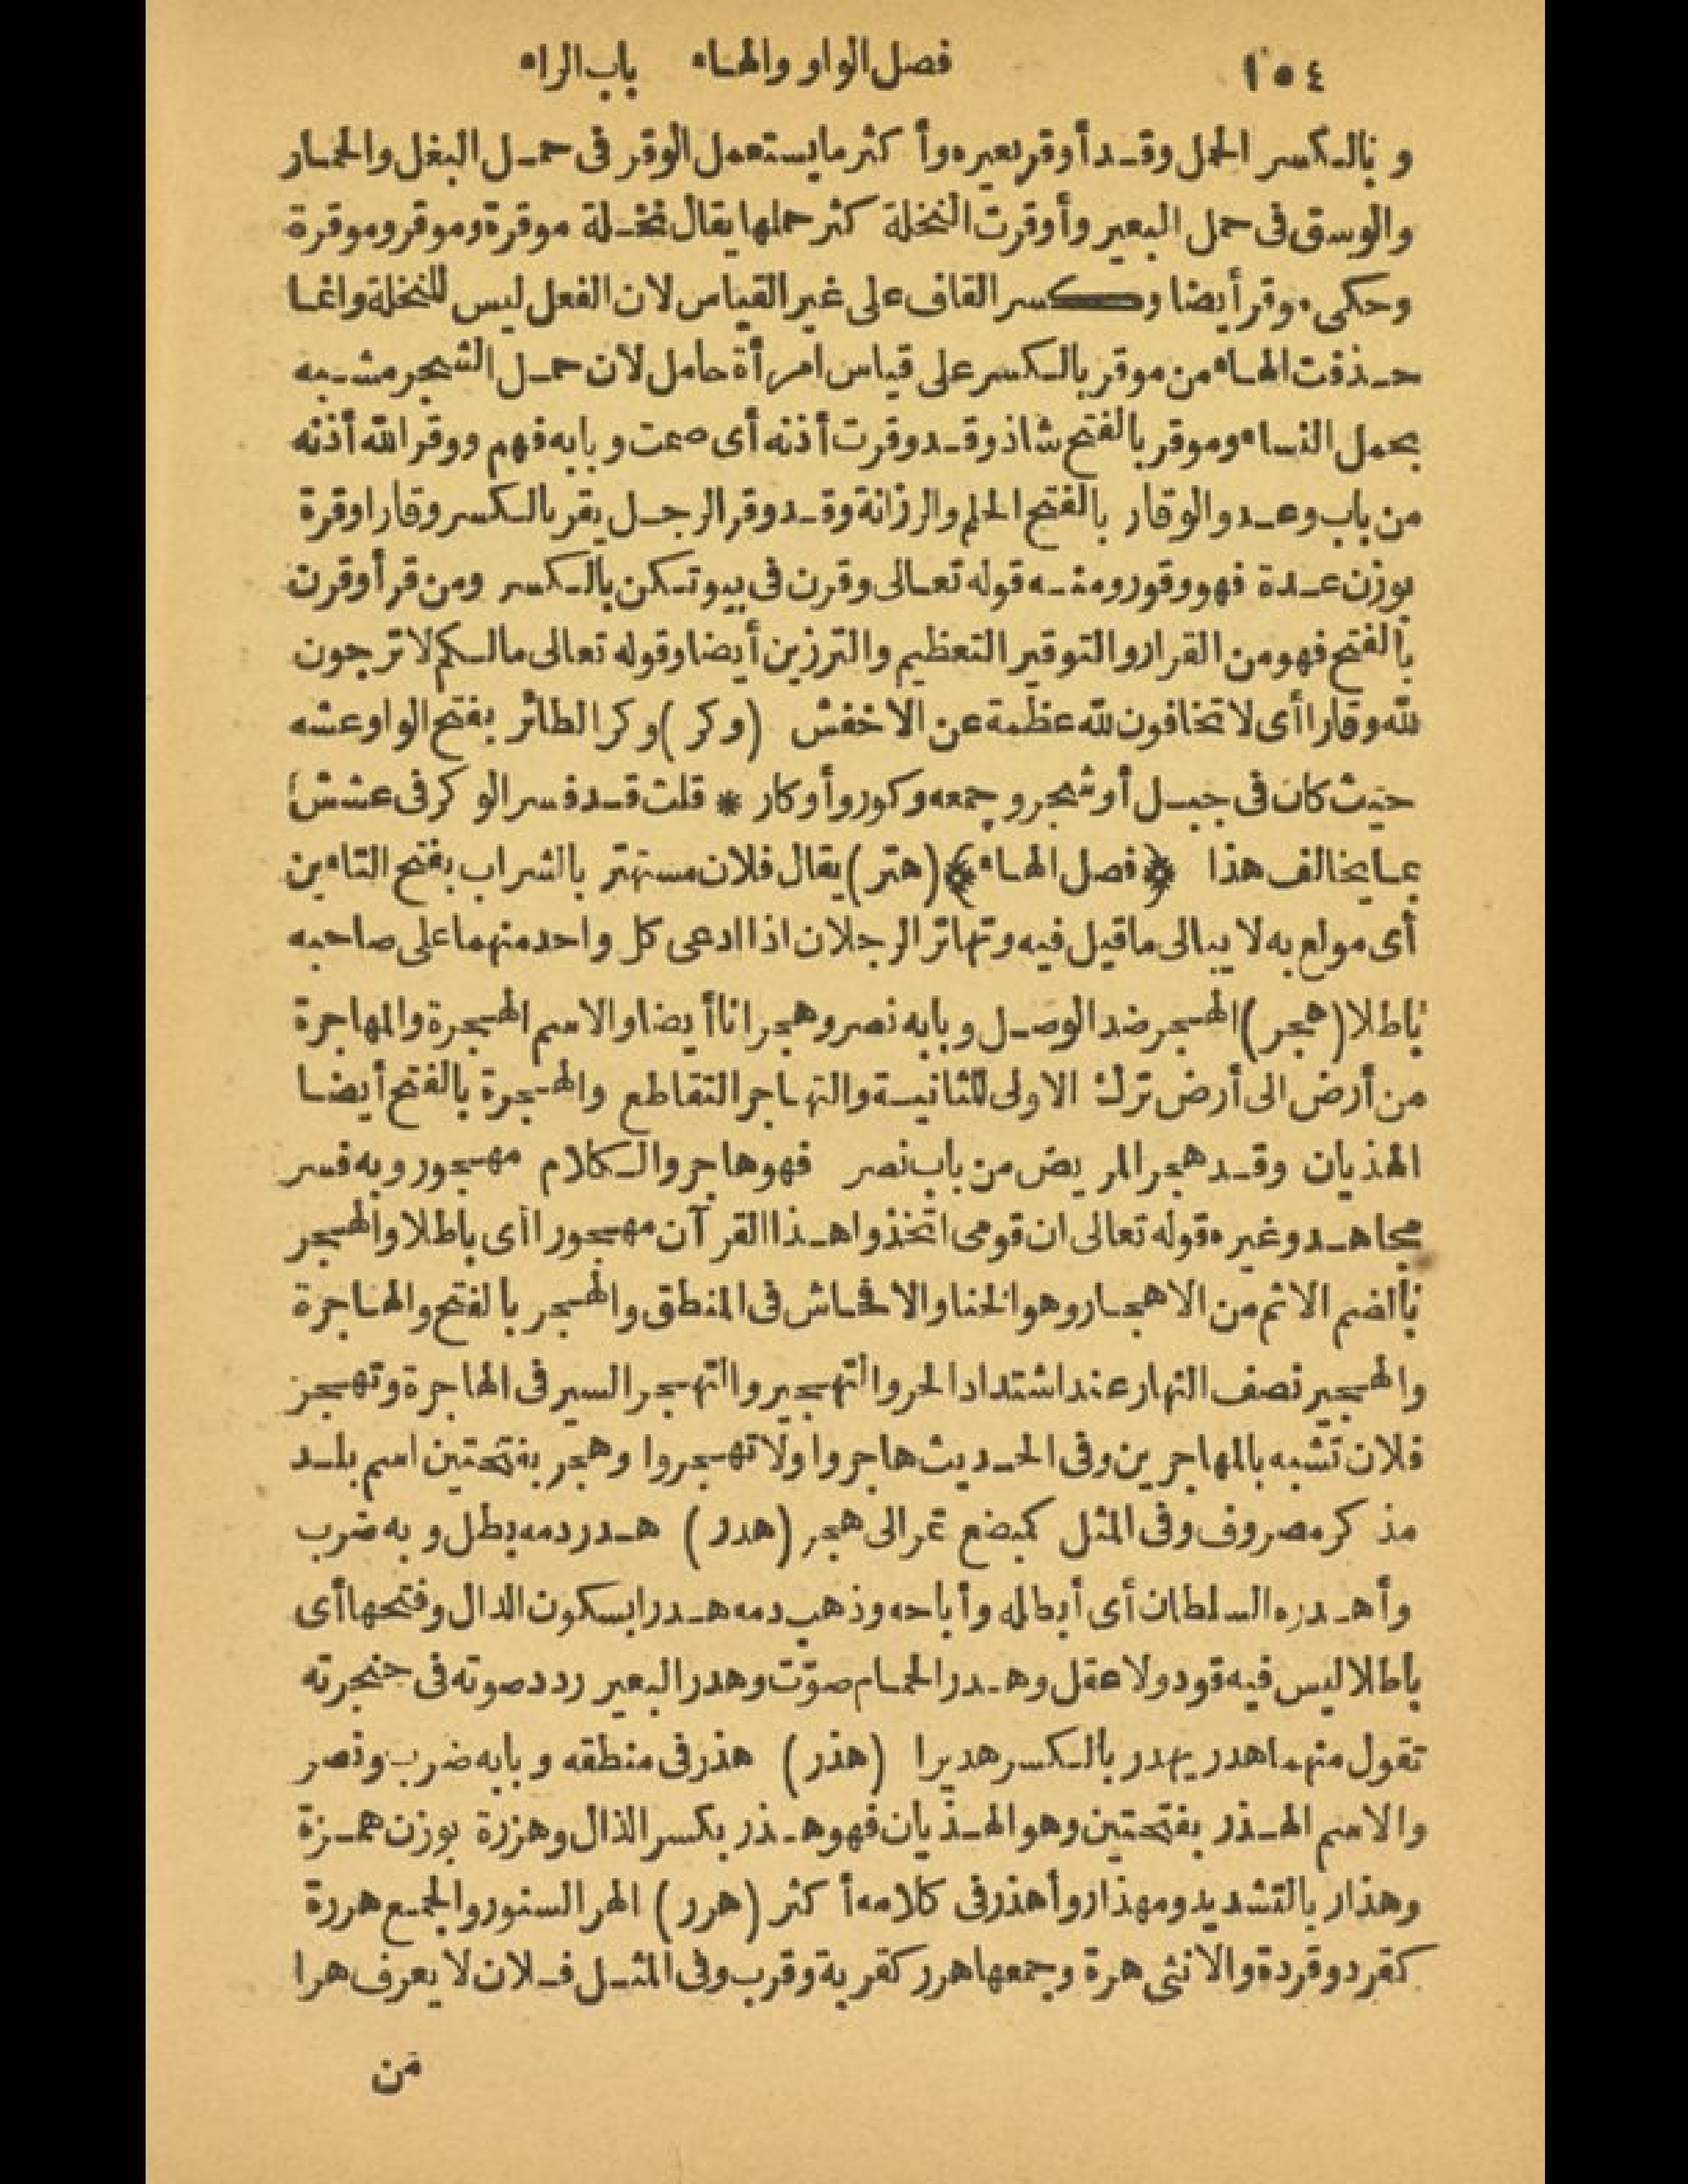 ١٥٤ فصل الواو والهاء باب الراء
وبالكسر الحمل وقد أوقر بعيره وأكثر ما يستعمل الوقر فى حمل البغل والحمار
والوسق فى حمل البعير وأوقرت النخلة كثر حملها يقال نخلة موقرة وموقر وموقرة
وحكى موقر أيضا وكسر القاف على غير القياس لان الفعل ليس للنخلة وانما
حذفت الهاء من موقر بالكسر على قياس امرأة حامل لان حمل الشجر مشبه
بحمل النساء وموقر بالفتح شاذ وقد وقرت أذنه أى صمت وبابه فهم ووقر الله أذنه
من باب وعد والوقار بالفتح الحلم والرزانة وقد وقر الرجل يقر بالكسر وقارا وقرة
بوزن عدة فهو وقور ومنه قوله تعالى وقرن فى بيوتكن بالكسر ومن قرأ وقرن
بالفتح فهو من القرار والتوقير التعظيم والترزين أيضا وقوله تعالى مالكم لا ترجون
لله وقارا أى لا تخافون لله عظمة عن الاخفش (وكر) وكر الطائر بفتح الواو عشه
حيث كان فى جبل أو شجر وجمعه وكور وأوكار * قلت قد فسر الوكر فى عشش
بما يخالف هذا ﴿فصل الهاء﴾ (هتر) يقال فلان مستهتر بالشراب بفتح التاءين
أى مولع به لا يبالى ما قيل فيه وتهاتر الرجلان اذا ادعى كل واحد منهما على صاحبه
باطلا (هجر) الهجر ضد الوصل وبابه نصر وهجرانا أيضا والاسم الهجرة والمهاجرة
من أرض الى أرض ترك الاولى للثانية والتهاجر التقاطع والهجرة بالفتح أيضا
الهذيان وقد هجر المريض من باب نصر فهو هاجر والكلام مهجور وبه فسر
مجاهد وغيره قوله تعالى ان قومى اتخذوا هذا القرآن مهجورا أى باطلا والهجر
بالضم الاثم من الاهجار وهو الخنا والافحاش فى المنطق والهجر بالفتح والهاجرة
والهجير نصف النهار عند اشتداد الحر والتهجير والتهجر السير فى الهاجرة وتهجر
فلان تشبه بالمهاجرين وفى الحديث هاجروا ولا تهجروا وهجر بفتحتين اسم بلد
مذكر مصروف وفى المثل كمبضع تمر الى هجر (هدر) هدر دمه بطل وبه ضرب
وأهدره السلطان أى أبطله وأباحه وذهب دمه هدرا بسكون الدال وفتحها أى
باطلا ليس فيه قود ولا عقل وهدر الحمام صوّت وهدر البعير ردد صوته فى حنجرته
تقول منهما هدر يهدر بالكسر هديرا (هذر) هذر فى منطقه وبابه ضرب ونصر
والاسم الهذر بفتحتين وهو الهذيان فهو هذر بكسر الذال وهزرة بوزن همزة
وهذار بالتشديد ومهذار وأهذر فى كلامه أكثر (هرر) الهر السنور والجمع هررة
كقرد وقردة والانثى هرة وجمعها هرر كقربة وقرب وفى المثل فلان لا يعرف هرا
من